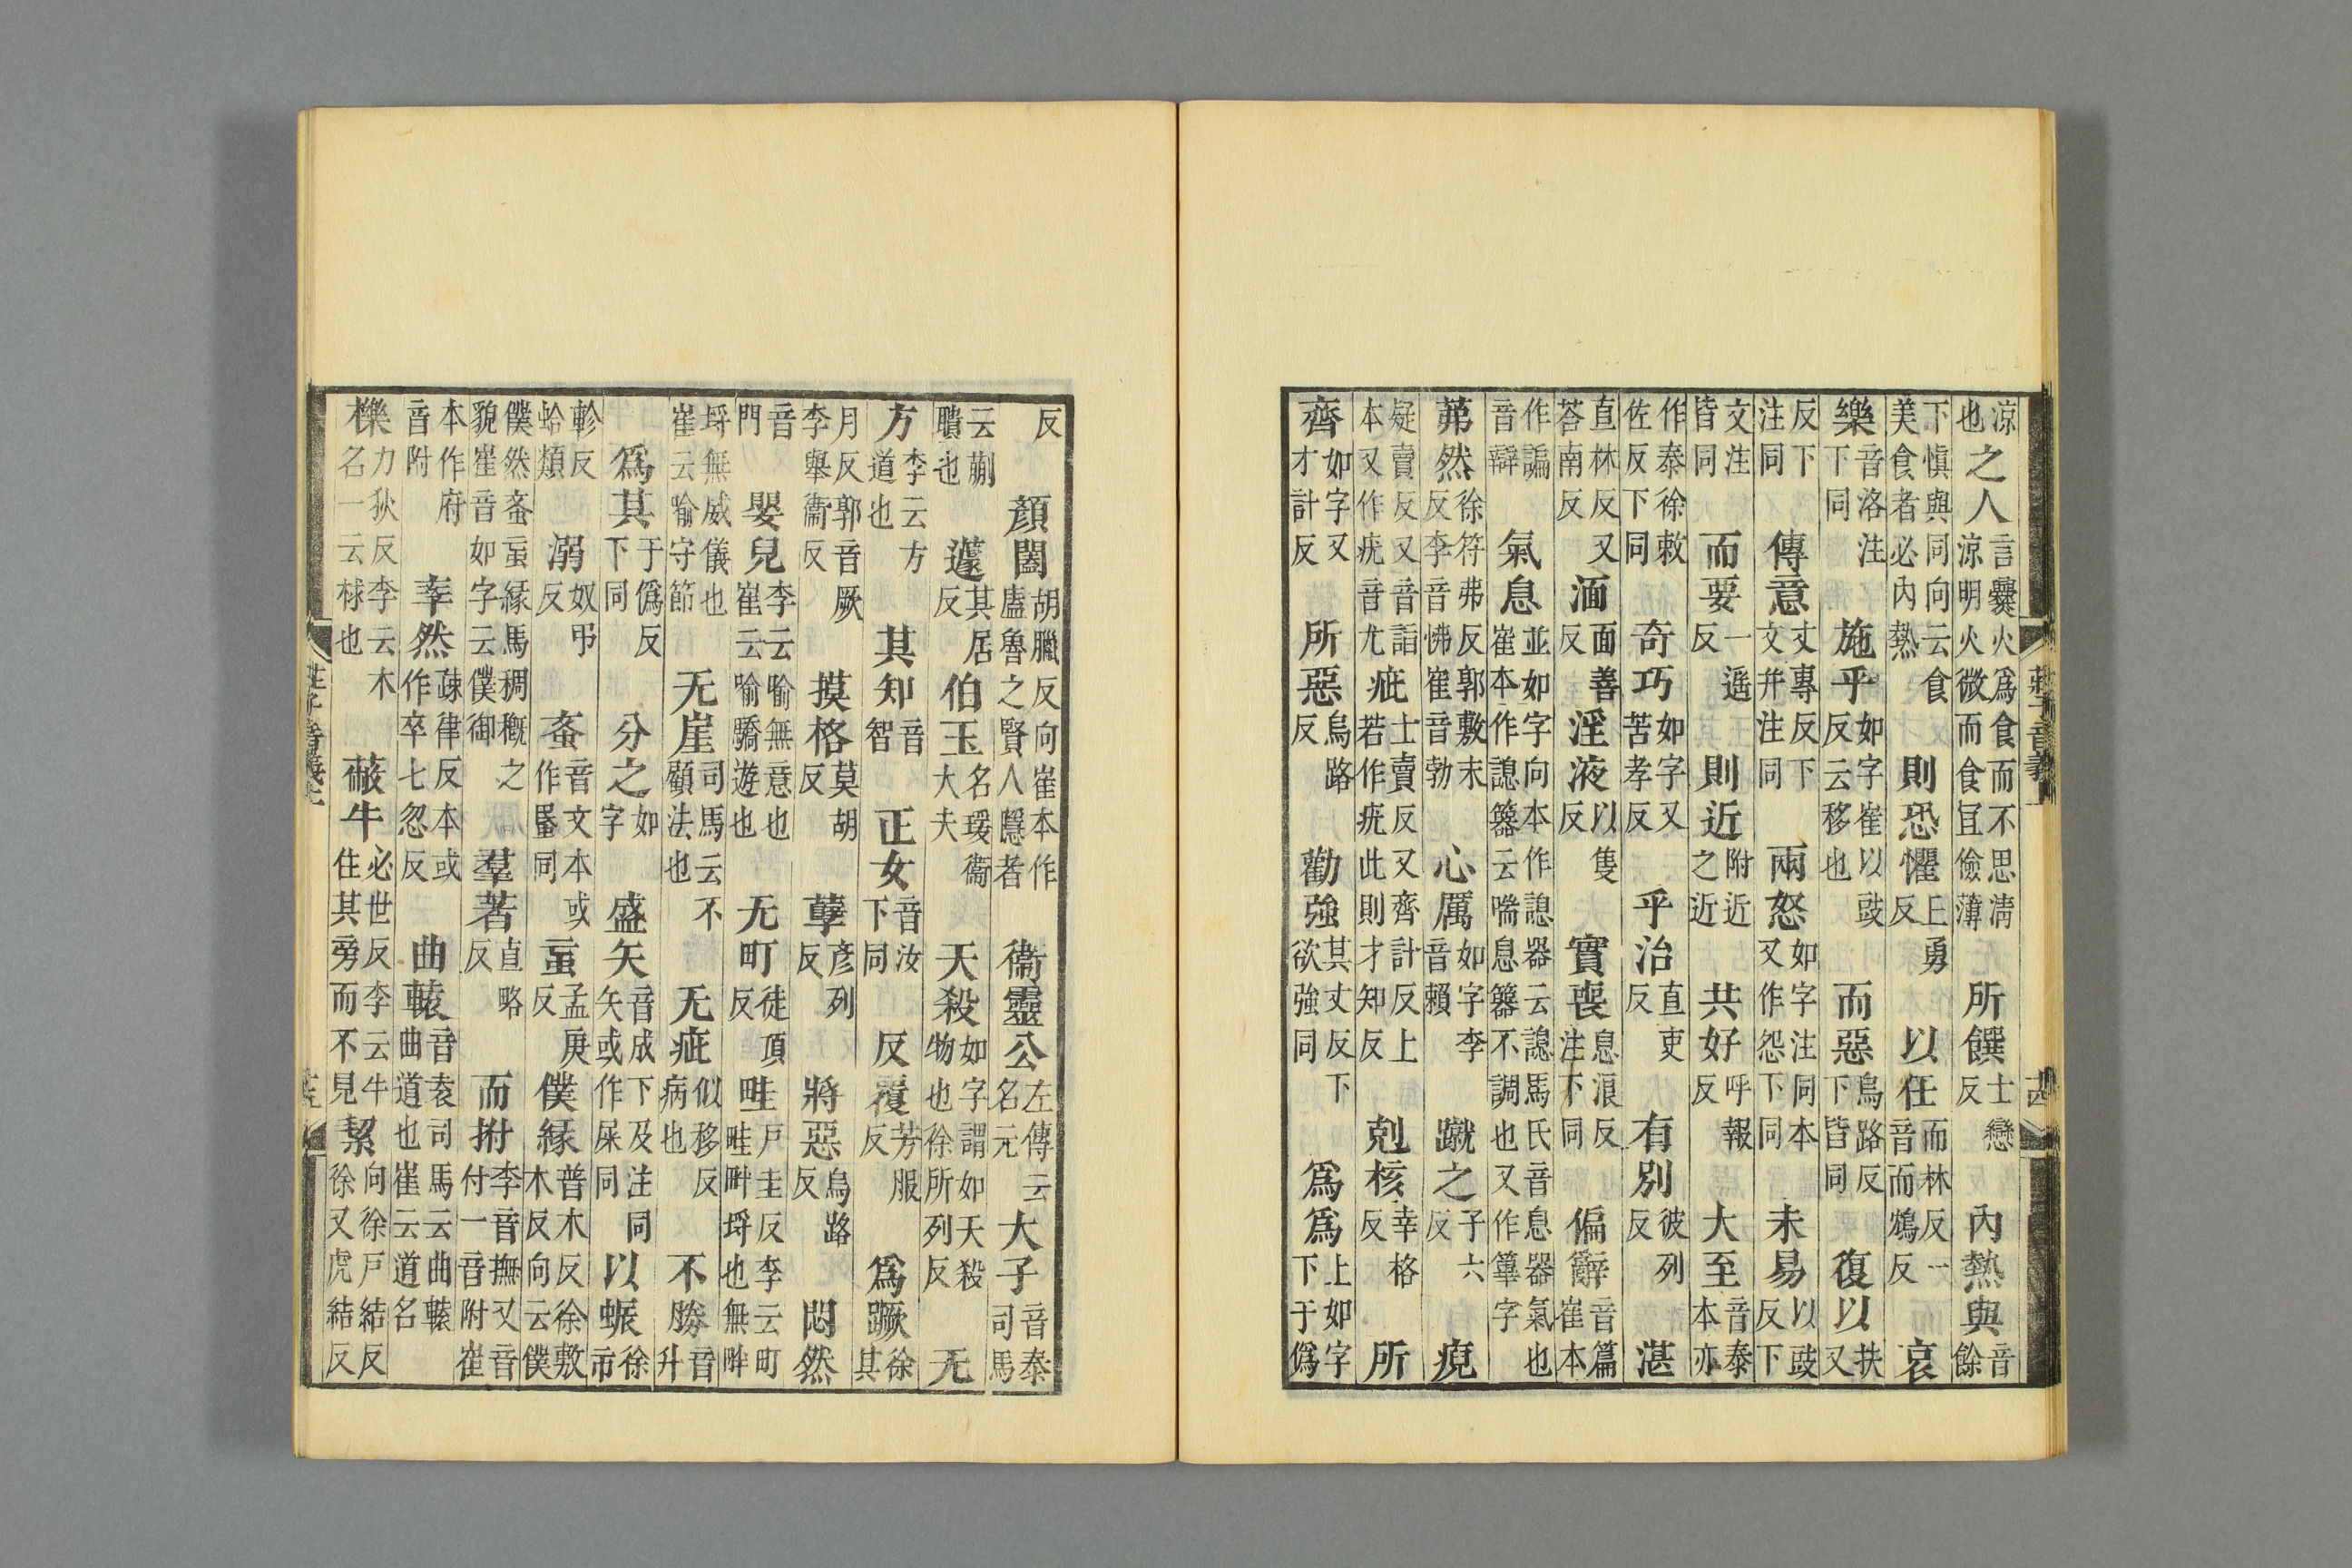 涼也之人言爨火爲食而不思凊涼明火微而食宜儉薄所饌士戀反內熱與音餘
下慎與同向云食美食者必內熱則恐懼丘勇反以任而林反一音而鴆反哀
樂音洛注下同施乎如字崔以豉反云移也而惡烏路反下皆同復以扶又
反下注同傳意丈專反下文幷注同兩怒如字注同本又作怨下同未易以豉反下
文注皆同而要一遥反則近附近之近共好呼報反大至音泰本亦
作泰徐敕佐反下同奇巧如字又苦孝反乎治直吏反有別彼列反湛
直林反又荅南反湎面善反淫液以隻反實喪息浪反注下同偏辭音篇崔本
作諞音辯氣息並如字向本作諰器云諰馬氏音息器氣也崔本作諰籋云喘息籋不調也又作篳字
茀然徐符弗反郭敷末反李音怫崔音勃心厲如字李音賴蹴之子六反
疑賣反又音詣本又作疣音尤疵士賣反又齊計反上若作疣此則才知反剋核幸格反所
齊如字又才計反所惡烏路反勸強其丈反下欲強同爲爲上如字下于僞
莊子音義上 十四
反顏闔胡臘反向崔本作盧魯之賢人隱者衞靈公左傳云名元大子音泰司馬
云蒯聵也蘧其居反伯玉名瑗衞大夫天殺如字謂如天殺物也徐所列反无
方李云方道也其知音智正女音汝下同反覆芳服反爲蹶徐其
月反郭音厥李舉衞反摸格莫胡反孽彥列反將惡烏路反悶然
音門嬰兒李云喻無意也崔云喻驕遊也无町徒頂反畦戶圭反李云町畦畔埓也無畔
埓無威儀也崔云喻守節无崖司馬云不顧法也无疵似移反病也不勝音升
爲其于僞反下同分之如字盛矢音成下及注同矢或作屎同以蜄徐市
軫反蛤類溺奴弔反蚉音文本或作蟁同䖟孟庚反僕緣普木反徐敷木反向云僕
僕然蚉䖟緣馬稠穊之貌崔音如字云僕御羣著直略反而拊李音撫又音付一音附崔
本作府音附率然疎律反本或作卒七忽反曲轅音袁司馬云曲轅曲道也崔云道名
櫟力狄反李云木名一云梂也蔽牛必世反李云牛住其旁而不見絜向徐戶結反徐又虎結反
莊子音義上 十五